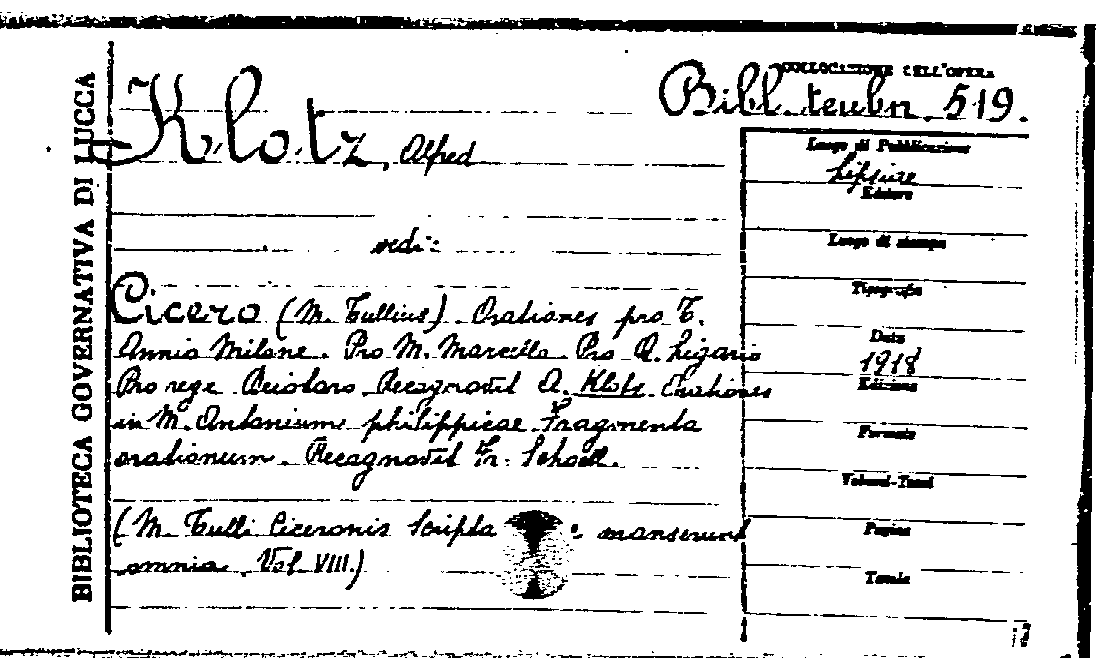 BIBLIOTECA GOVERNATIVA DI LUCCA
COLLOCAZIONE DELL'OPERA
Bibl. teubn. 519.
Klotz, Alfred
vedi:
Cicero (M. Tullius). Orationes pro T.
Annio Milone. Pro M. Marcello. Pro Q. Ligario
Pro rege Deiotaro Recognovit A. Klotz. Orationes
in M. Antonium philippicae Fragmenta
orationum. Recognovit Fr. Schoell.
(M. Tulli Ciceronis Scripta manserunt
omnia. Vol VIII.)
Luogo di Pubblicazione
Lipsiae
Editore
Luogo di stampa
Tipografia
Data
1918
Edizione
Formato
Volumi-Tomi
Pagine
Tavole